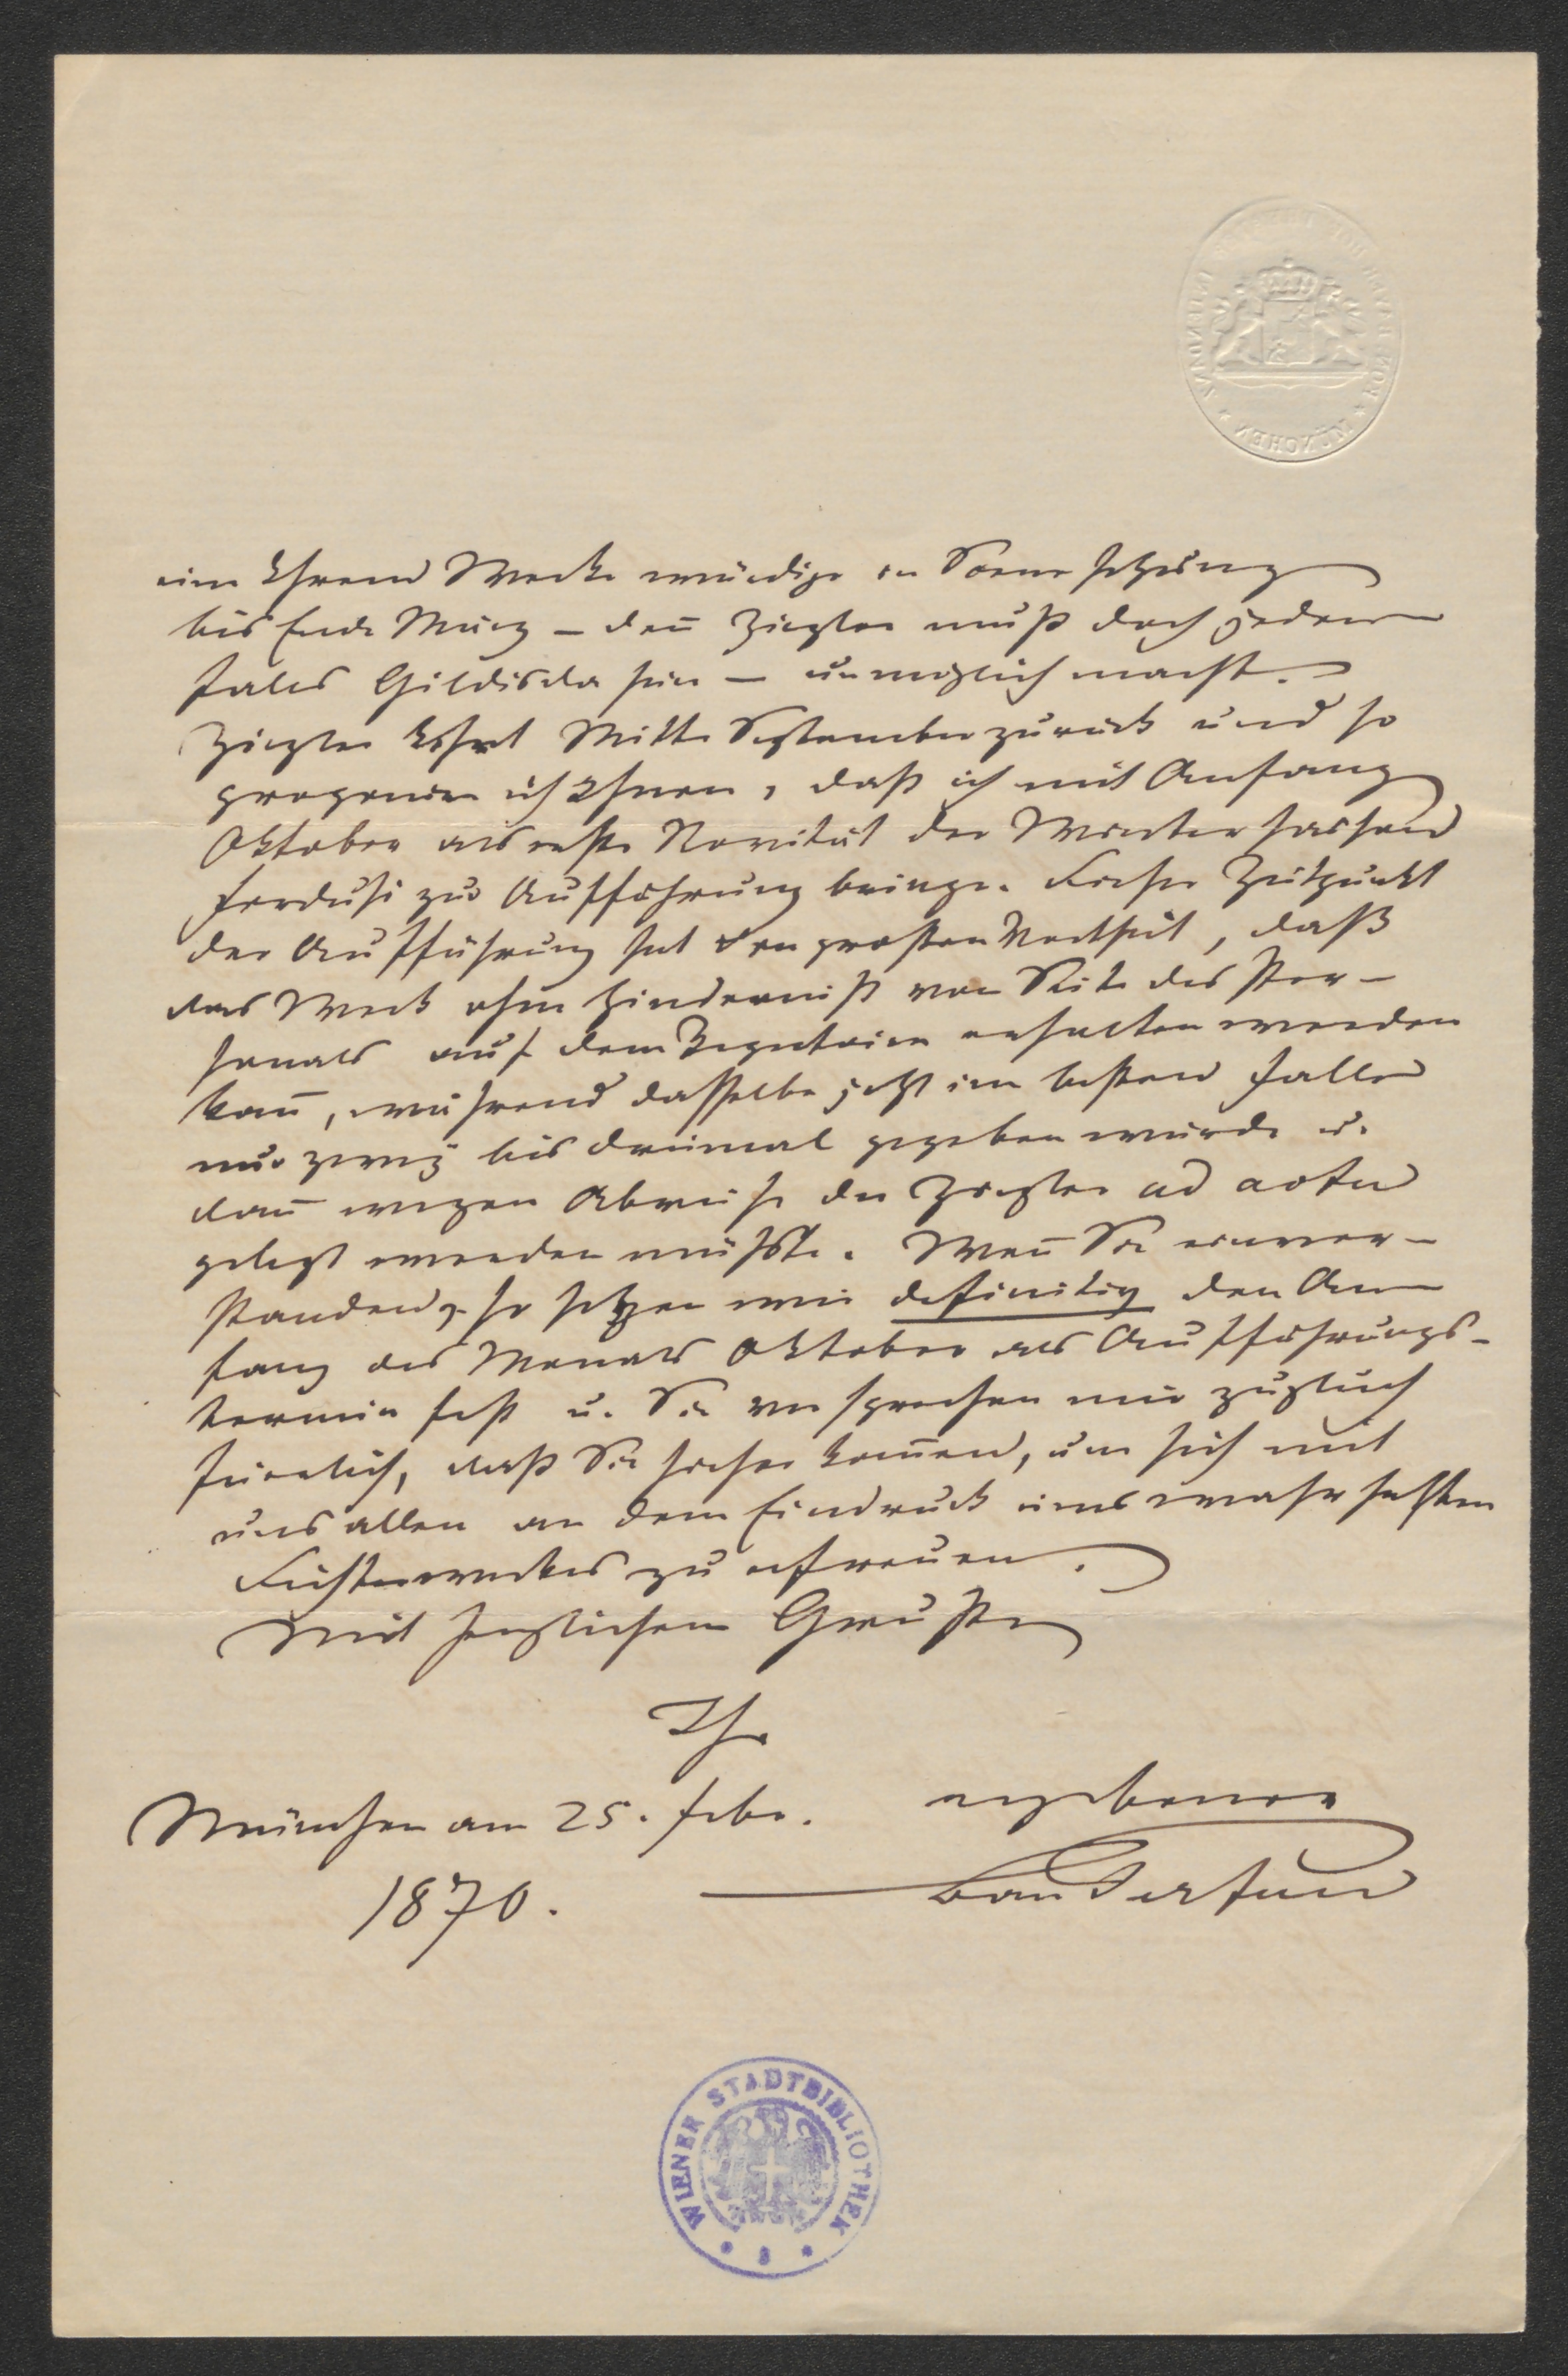 eine Ihrem Werke würdige in Scene setzung
bis Ende März – deñ Ziegler muß doch jeden
falls Gildisda sein – unmöglich macht.
Ziegler kehrt Mitte September zurück und so
proponire ich Ihnen, daß ich mit Anfang
Oktober als erste Novität der Winter saison
Ferdusi zur Aufführung bringe. Dieser Zeitpunkt
der Aufführung hat den großen Vortheil, daß
das Werk ohne Hinderniß von Seite des Per-
sonals auf dem Repertoire erhalten werden
kañ, während dasselbe jetzt im besten Falle
nur zwey bis dreimal gegeben würde u.
dañ wegen Abreise der Ziegler ad acta
gelegt werden müßte. Weñ Sie einver-
standen, so setzen wir definitiv den An
fang des Monats Oktober als Aufführungs-
termin fest u. Sie versprechen mir zugleich
feierlich, daß Sie hieher kom̄en, um sich mit
uns allen an dem Eindruck eines wahrhaften
Dichterwerkes zu erfreuen.
Mit herzlichem Gruße
Ihr
München am 25. Febr.
ergebener
1870.
WIENER STADTBIBLIOTHEK
MÜNCHEN